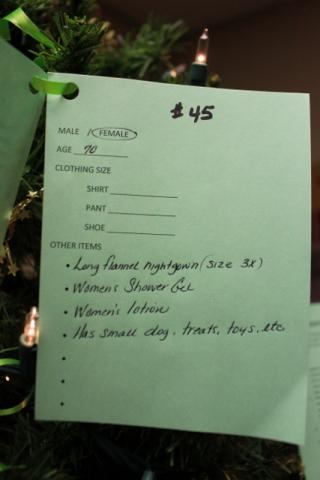 # 45
MALE / FEMALE
AGE 70
CLOTHING SIZE
SHIRT
PANT
SHOE
OTHER ITEMS
• Long flannel nightgown (size 3X)
• Women's Shower Gel
• Women's lotion
• Has small dog, treats, toys, etc
•
•
•